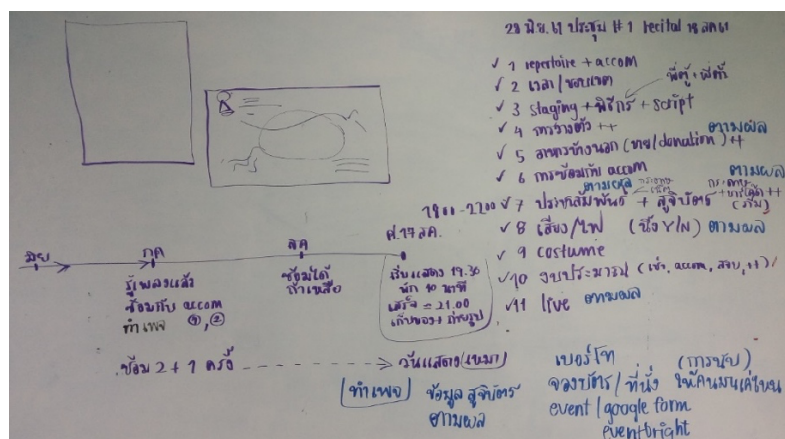 28 มิย. 61 ประชุม #1 recital 18 สค 61
✓ 1 repertoire + accom
✓ 2 เวลา / ขอบเขต
✓ 3 staging + พิธีกร + script
✓ 4 การวางตัว ++ ตามผล
✓ 5 อาหารข้างนอก (ขาย/donation) ++
✓ 6 การซ้อมกับ accom ตามผล
ตามผล
✓ 7 ประชาสัมพันธ์ + สูจิบัตร (ริม)
✓ 8 เสียง/ไฟ (นั่ง Y/N) ตามผล
✓ 9 costume
✓ 10 งบประมาณ (เช่า, accom, สอบ, ++)
✓ 11 live ตามผล
1800-2200
ศ. 17 สค.
มิย
กค
สค
รู้เพลงแล้ว
ซ้อมกับ accom
ทำเพจ ①, ②
ซ้อมได้
ถ้าเหลือ
เริ่มแสดง 19.30
พัก 10 นาที
เสร็จ = 21.00
เก็บของ + ถ่ายรูป
ซ้อม 2 + 1 ครั้ง
วันแสดง (เหมา)
(ทำเพจ) ข้อมูล สูจิบัตร
ตามผล
เบอร์โท (การนับ)
จองบัตร / ที่นั่ง ให้คน
event / google form
eventbright